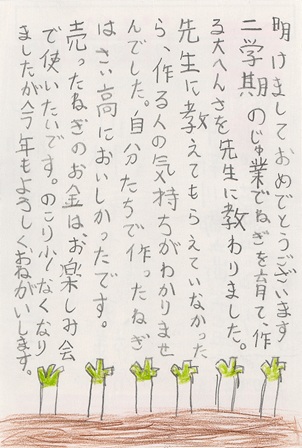 明けましておめでとうございます
二学期のじゅ業でねぎを育て、作
る大へんさを先生に教わりました。
先生に教えてもらえていなかった
ら、作る人の気持ちがわかりませ
んでした。自分たちで作ったねぎ
はさい高においしかったです。
売ったねぎのお金は、お楽しみ会
で使いたいです。のこり少なくなり
ましたが今年もよろしくおねがいします。